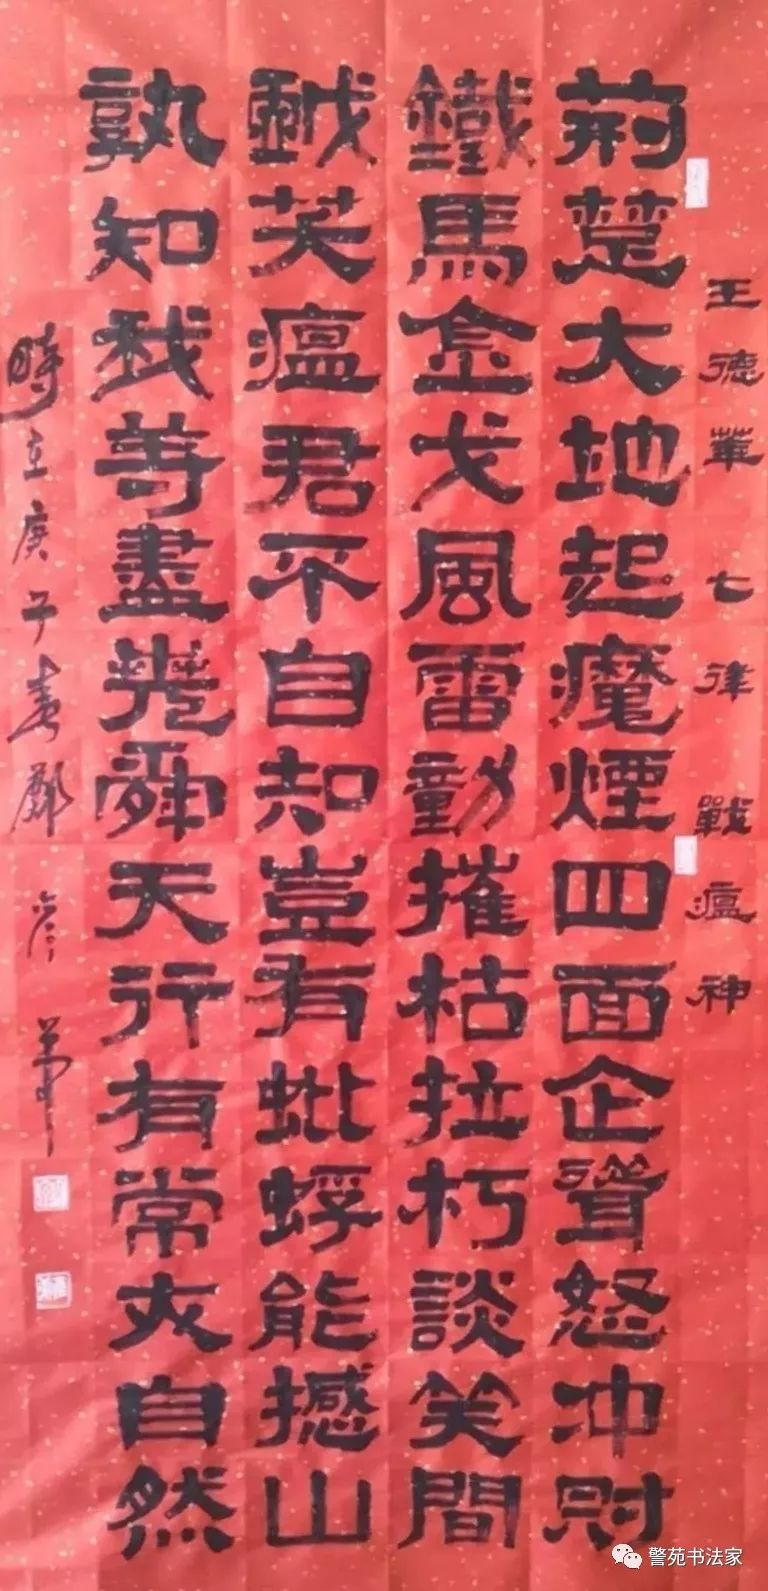 王德華 七律 戰瘟神
荊楚大地起魔煙四面企聳怒冲冠
鐵馬金戈風雷動摧枯拉朽談笑間
笑瘟君不自知豈有蚍蜉能撼山
孰知我等盡堯舜天行有常友自然
時在庚子春鄭彥
警苑书法家